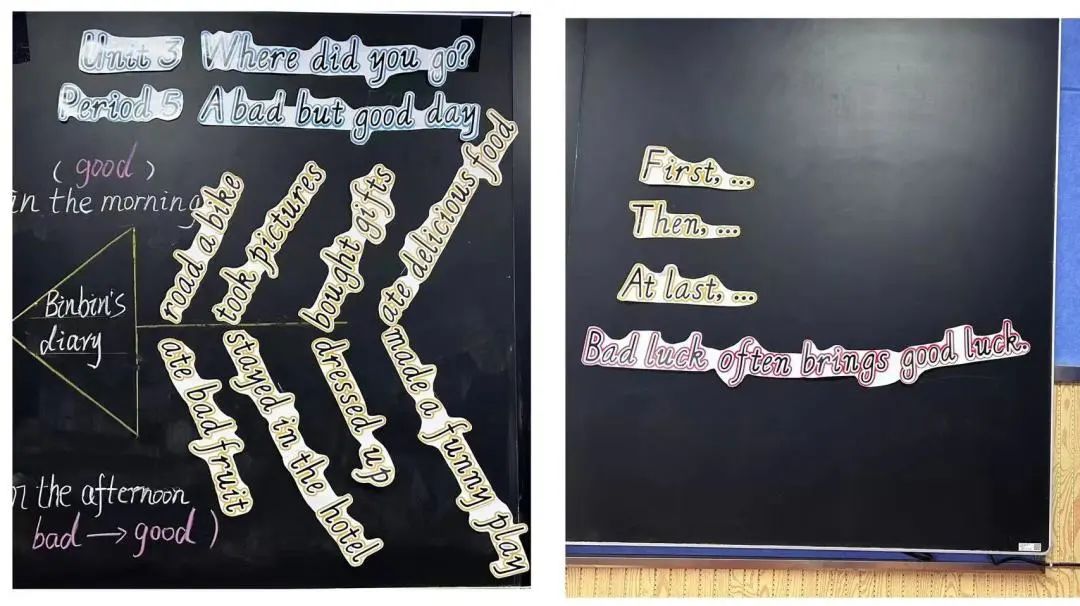 Unit 3 Where did you go?
Period 5 A bad but good day
( good )
in the morning
Binbin's
diary
road a bike
took pictures
bought gifts
ate delicious food
ate bad fruit
stayed in the hotel
dressed up
made a funny play
the afternoon
bad → good )
First, ...
Then, ...
At last, ...
Bad luck often brings good luck.